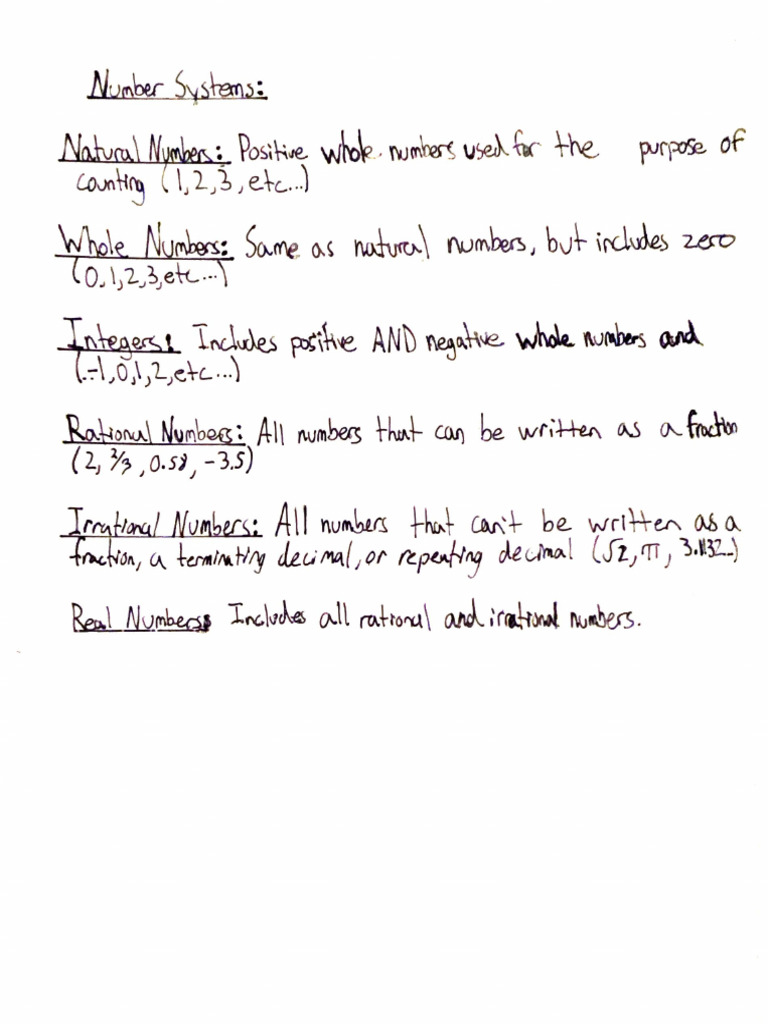 Number Systems:
Natural Numbers: Positive whole numbers used for the purpose of
counting (1, 2, 3, etc...)
Whole Numbers: Same as natural numbers, but includes zero
(0, 1, 2, 3, etc...)
Integers: Includes positive AND negative whole numbers and
(.-1, 0, 1, 2, etc...)
Rational Numbers: All numbers that can be written as a fraction
(2, 2/3, 0.58, -3.5)
Irrational Numbers: All numbers that can't be written as a
fraction, a terminating decimal, or repeating decimal (√2, π, 3.1132...)
Real Numbers: Includes all rational and irrational numbers.